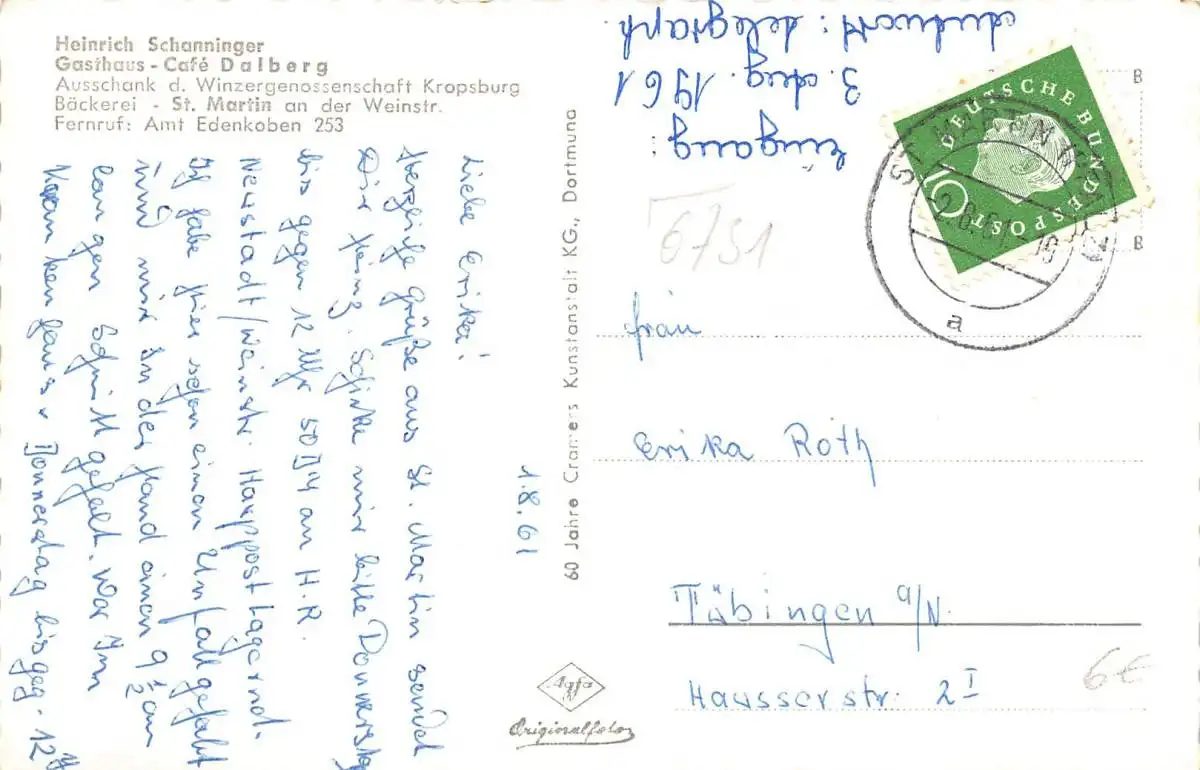 Heinrich Schanninger
Gasthaus - Café Dalberg
Ausschank d. Winzergenossenschaft Kropsburg
Bäckerei - St. Martin an der Weinstr.
Fernruf: Amt Edenkoben 253
1.8.61
Liebe Erika!
Herzliche Grüße aus St. Martin sendet
Dir Heinz. Schicke mir bitte Donnerstag
bis gegen 12 Uhr 50 DM an H.R.
Neustadt/Weinstr. Hauptpostlagernd.
Ich habe hier schon einen Unfall gehabt
und mir in der Hand einen 9 1/2 cm
langen Schnitt geholt. War im
Krankenhaus. Donnerstag bis geg. 12 U
60 Jahre Cramers Kunstanstalt KG., Dortmund
Eingang:
3. Aug. 1961
Antwort: telegraph
DEUTSCHE BUNDESPOST
10
a
6751
Frau
Erika Roth
Tübingen a/N.
Hausserstr. 2 I
6€
Agfa
Originalfoto
B
B